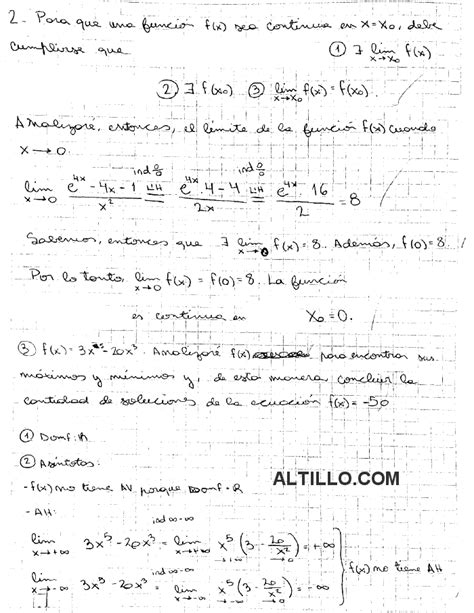 2. Para que una función f(x) sea continua en x=x₀, debe
cumplirse que ① ∃ lim x→x₀ f(x)
② ∃ f(x₀) ③ lim x→x₀ f(x) = f(x₀).
Analizaré, entonces, el límite de la función f(x) cuando
x → 0.
ind 0/0 ind 0/0
lim x→0 (e^4x - 4x - 1)/x² =LH (e^4x · 4 - 4)/2x =LH (e^4x · 16)/2 = 8
Sabemos, entonces que ∃ lim x→0 f(x) = 8. Además, f(0) = 8.
Por lo tanto, lim x→0 f(x) = f(0) = 8. La función
es continua en x₀ = 0.
③ f(x) = 3x⁵ - 20x³. Analizaré f(x) para encontrar sus
máximos y mínimos y, de esta manera, concluir la
cantidad de soluciones de la ecuación f(x) = -50
① Domf: R
② Asíntotas:
ALTILLO.COM
- f(x) no tiene AV porque Domf = R
- AH:
ind ∞-∞
lim x→+∞ 3x⁵ - 20x³ = lim x→+∞ x⁵ (3 - 20/x²) = +∞
f(x) no tiene AH
lim x→-∞ 3x⁵ - 20x³ = lim x→-∞ x⁵ (3 - 20/x²) = -∞